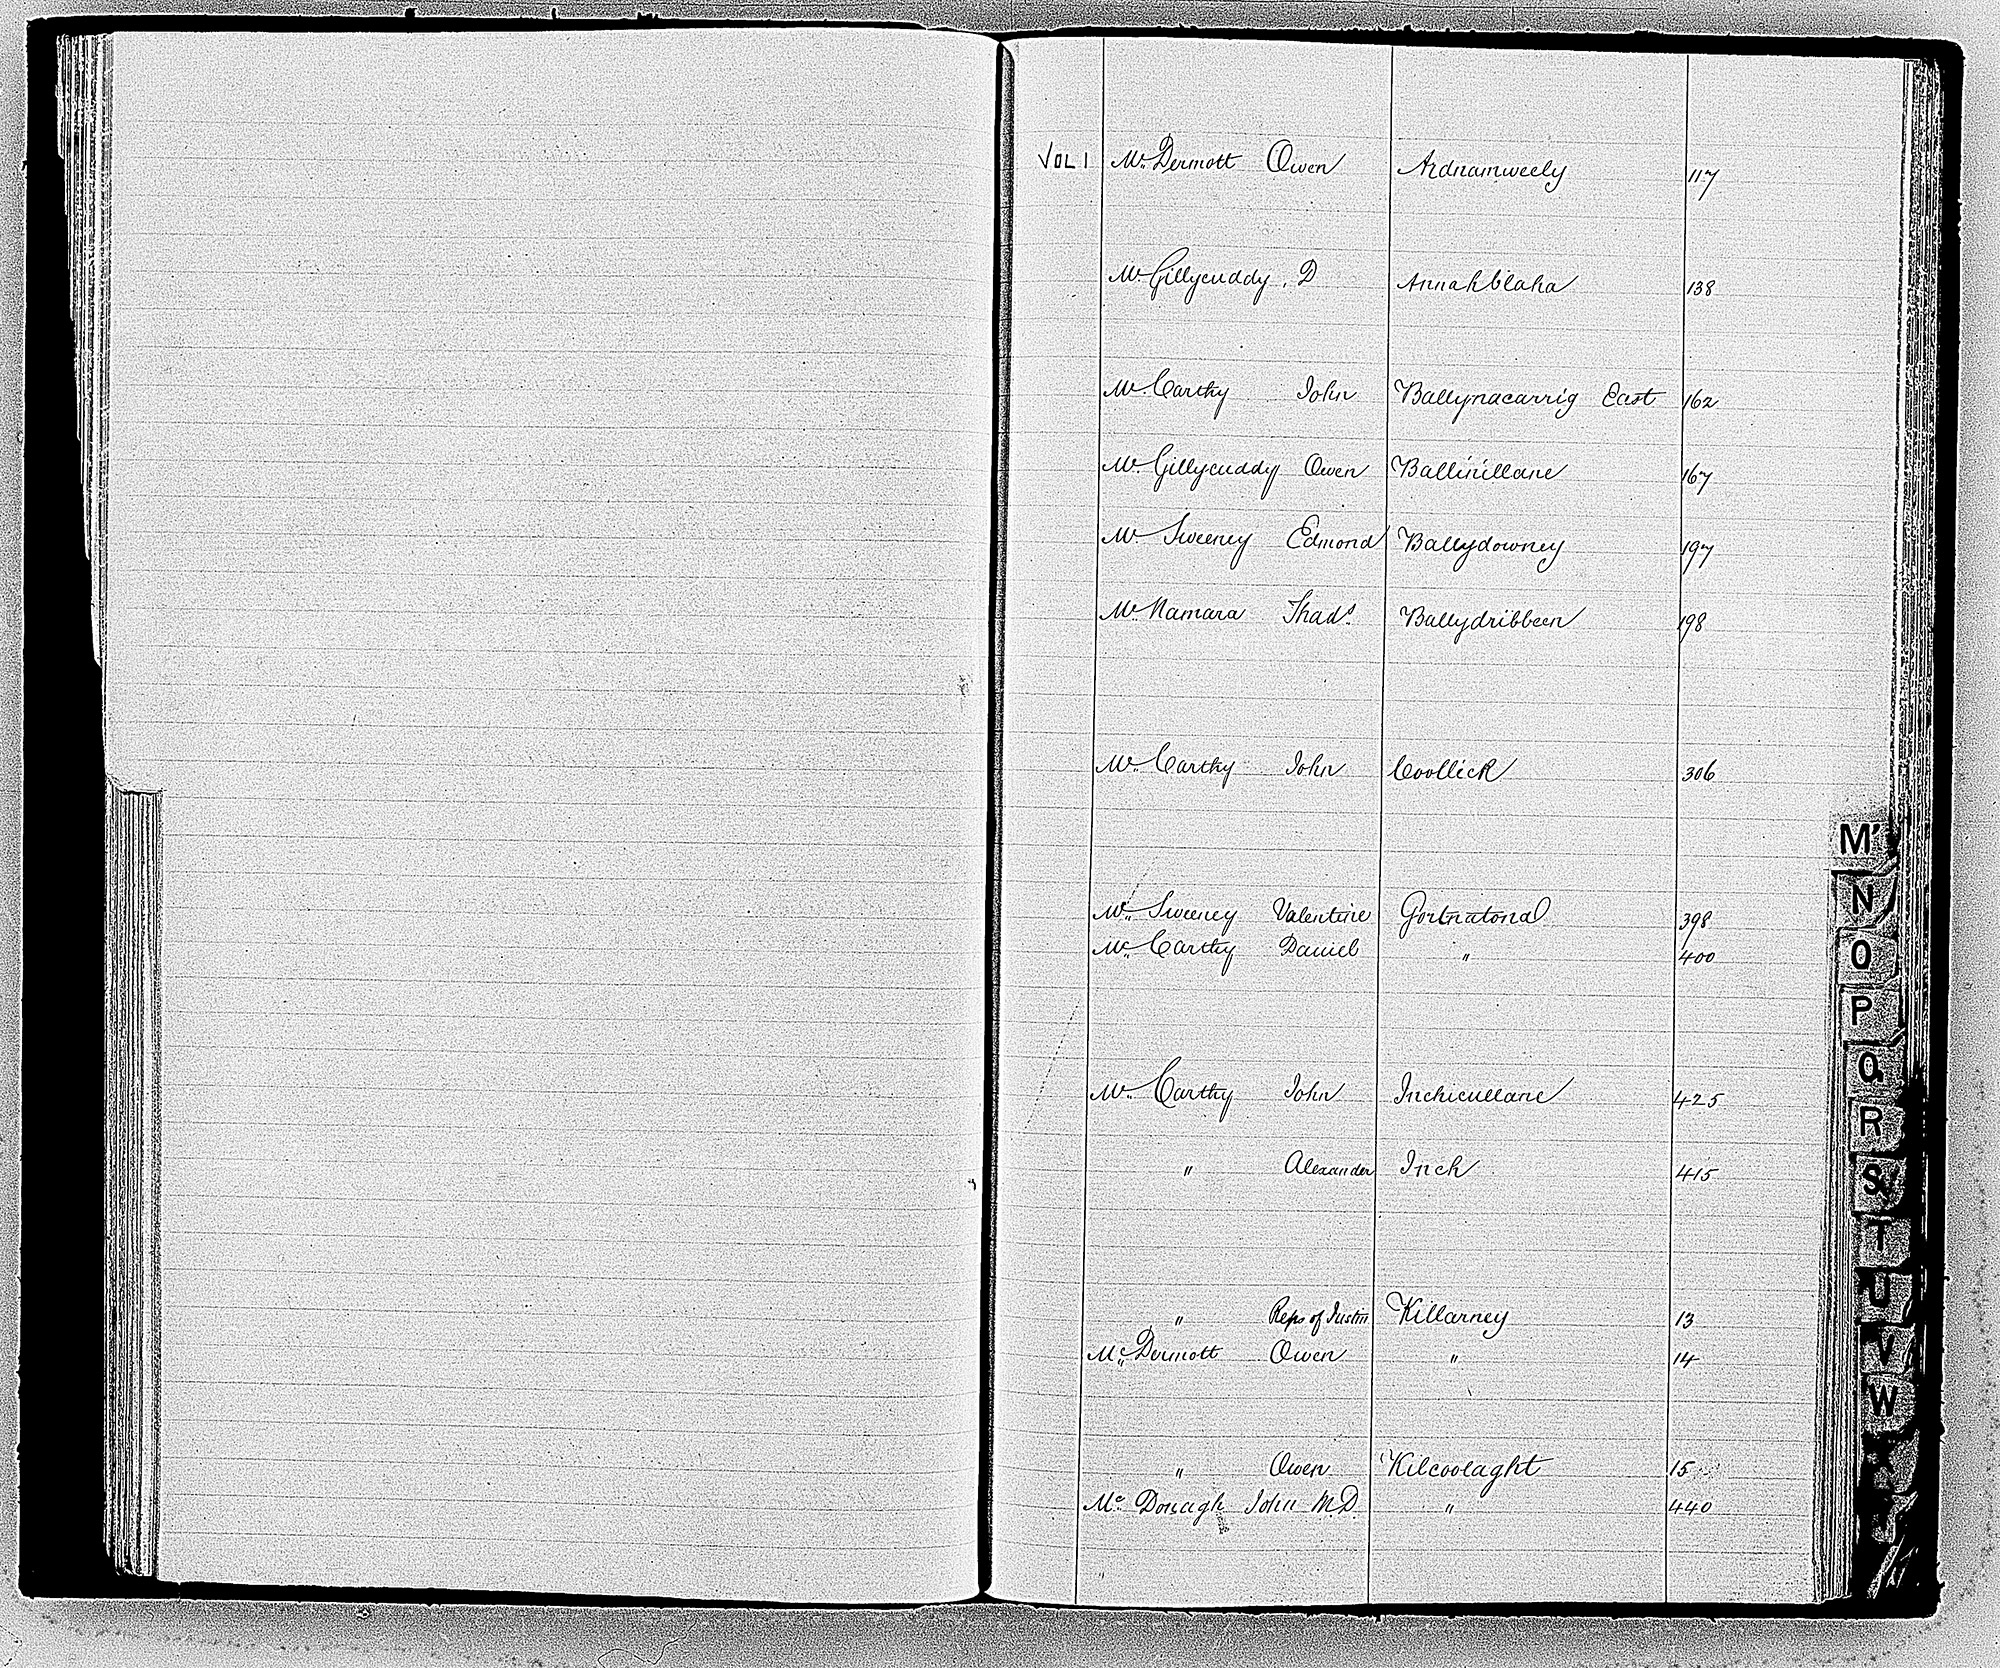 VOL 1 Mc Dermott Owen Ardnamweely 117
Mc Gillycuddy, D Annahblaha 138
Mc Carthy John Ballynacarrig East 162
Mc Gillycuddy Owen Ballinillane 167
Mc Sweeney Edmond Ballydowney 197
Mc Namara Thads. Ballydribbeen 198
Mc Carthy John Coollick 306
Mc Sweeney Valentine Gortnatonal 398
Mc Carthy Daniel " 400
Mc Carthy John Inchicullane 425
" Alexander Inch 415
" Reps of Justin Killarney 13
Mc Dermott Owen " 14
" Owen Kilcoolaght 15
Mc Donagh John M.D. " 440
Mc
N
O
P
Q
R
S
T
U
V
W
X
Y